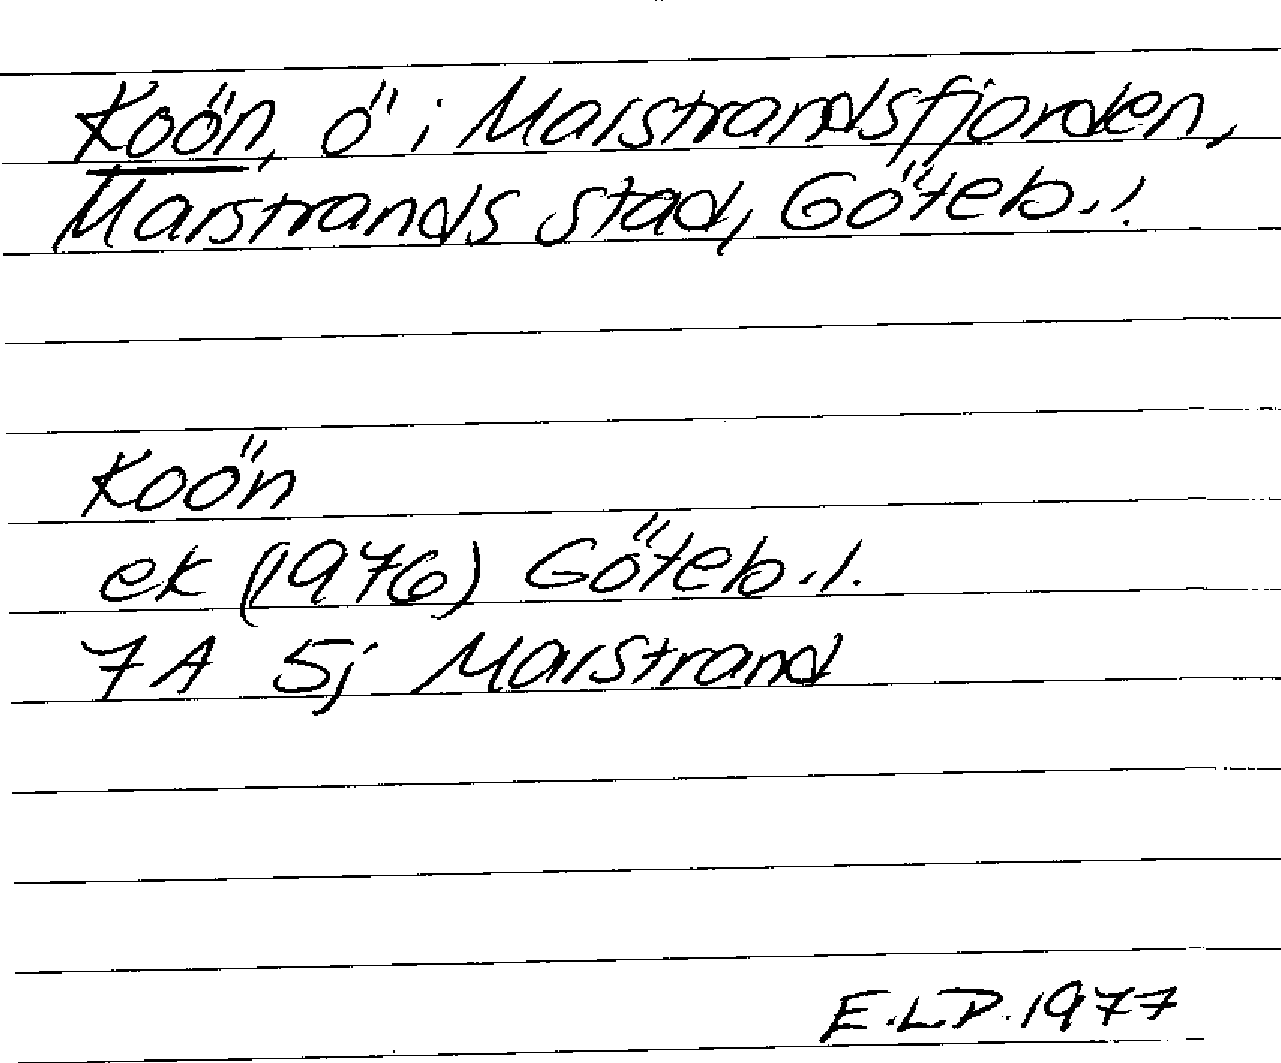 Koön, ö i Marstrandsfjorden,
Marstrands stad, Göteb.l.
Koön
ek (1976) Göteb.l.
7A 5j Marstrand
E.L.D. 1977